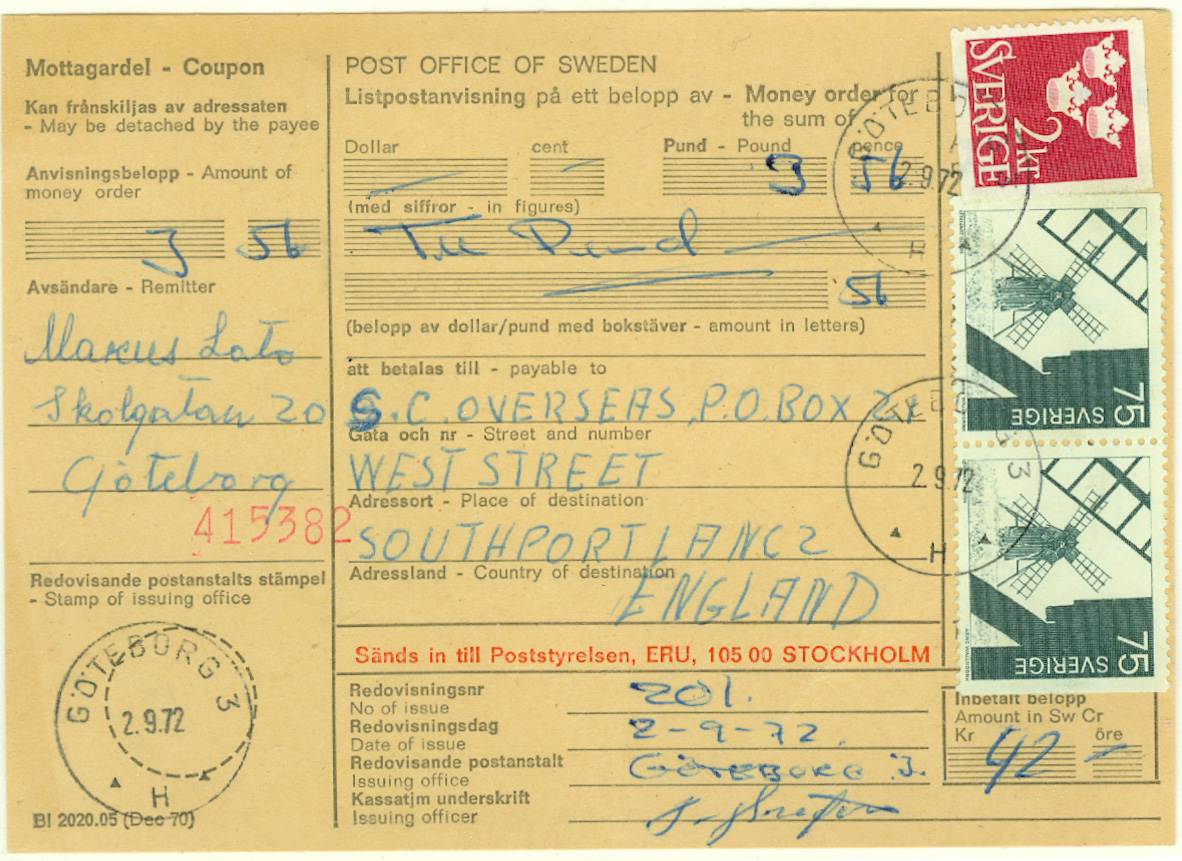 Mottagardel - Coupon
Kan frånskiljas av adressaten
- May be detached by the payee
Anvisningsbelopp - Amount of
money order
3 56
Avsändare - Remitter
Marcus
Skolgatan 20
Göteborg
415382
Redovisande postanstalts stämpel
- Stamp of issuing office
GÖTEBORG 3
2.9.72
H
BI 2020.05 (Dec 70)
POST OFFICE OF SWEDEN
Listpostanvisning på ett belopp av - Money order for
the sum of
Dollar cent Pund - Pound pence
3 56
(med siffror - in figures)
Pund
56
(belopp av dollar/pund med bokstäver - amount in letters)
att betalas till - payable to
S.C. OVERSEAS, P.O. BOX
Gata och nr - Street and number
WEST STREET
Adressort - Place of destination
SOUTHPORT LANCS
Adressland - Country of destination
ENGLAND
Sänds in till Poststyrelsen, ERU, 105 00 STOCKHOLM
Redovisningsnr
No of issue
201.
Redovisningsdag
Date of issue
2-9-72.
Redovisande postanstalt
Issuing office
GÖTEBORG 3.
Kassatjm underskrift
Issuing officer
Inbetalt belopp
Amount in Sw Cr
Kr öre
42 -
SVERIGE
2kr
GÖTEBORG 3
2.9.72
H
SVERIGE 75
GÖTEBORG 3
2.9.72
H
SVERIGE 75